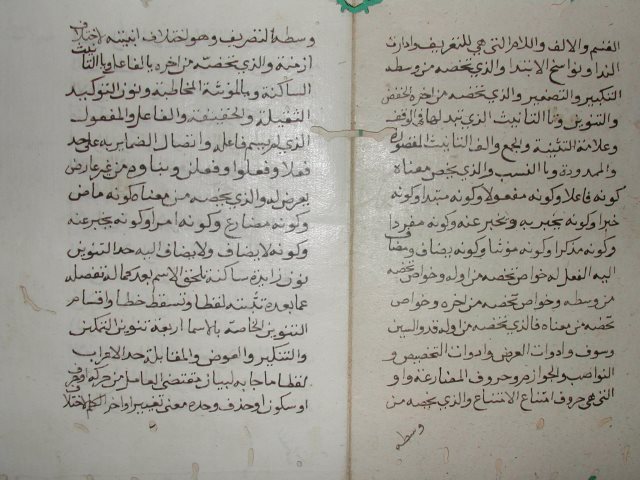 القسم والالف واللام التى هي للتعريف وادات
الندا ونواسخ الابتدا والذي يخصه من وسطه
التكبير والتصغير والذي يخصه من اخره الخفض
والتنوين وتا التانيث الذي تبدلها في الوقف
وعلامة التثنية والجمع والف التانيث المقصورة
والممدودة ويا النسب والذي يخص معناه
كونه فاعلا وكونه مفعولا وكونه مبتدا وكونه
خبرا وكونه يخبر به ويخبر عنه وكونه مفردا
وكونه مذكرا وكونه مؤنثا وكونه يضاف ومضاف
اليه الفعل له خواص تخصه من اوله وخواص تخصه
من وسطه وخواص تخصه من اخره وخواص
تخصه من معناه فالذي يخصه من اوله قد والسين
وسوف وادوات العرض وادوات التحضيض و
النواصب والجوازم وحروف المضارعة ولو
التى هي حروف امتناع الامتناع والذي يخصه من
وسطه
وسطه التصريف وهو اختلاف ابنيته لاختلاف
ازمنة والذي يخصه من اخره يا الفاعل ويا التانيث
الساكنة ويا المؤنثة المخاطبة ونون التوكيد
الثقيلة والخفيفة والفاعل والمفعول
الذي لم يسم فاعله واتصال الضماير به على حد
فعلا وفعلوا وفعلن وبناؤه من غير عارض
يعرض له والذي يخصه من معناه كونه ماض
وكونه مضارع وكونه امرا وكونه يخبر عنه
وكونه لا يضاف ولا يضاف اليه حد التنوين
نون زايدة ساكنة تلحق الاسم بعد كماله تفصله
عما بعده تثبته لفظا وتسقط خطا واقسام
التنوين الخاصة بالاسما اربعة تنوين التمكين
والتنكير والعوض والمقابلة حد الاعراب
لفظا ما جا به لبيان مقتضى العامل من حركة او حرف
او سكون او حذف وحده معنى تغيير اواخر الكلم لاختلا